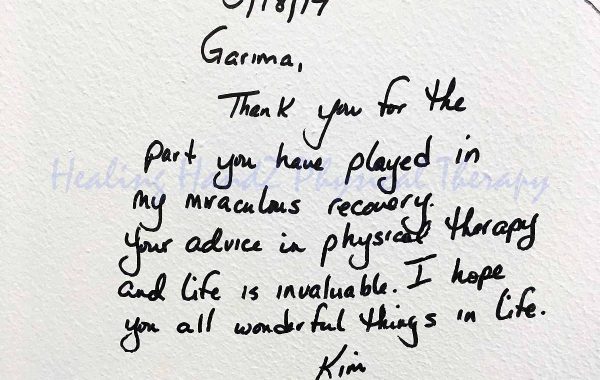 Garima,
Thank you for the
part you have played in
Healing HandZ Physical Therapy
my miraculous recovery.
your advice in physical therapy
and life is invaluable. I hope
you all wonderful things in life.
Kim